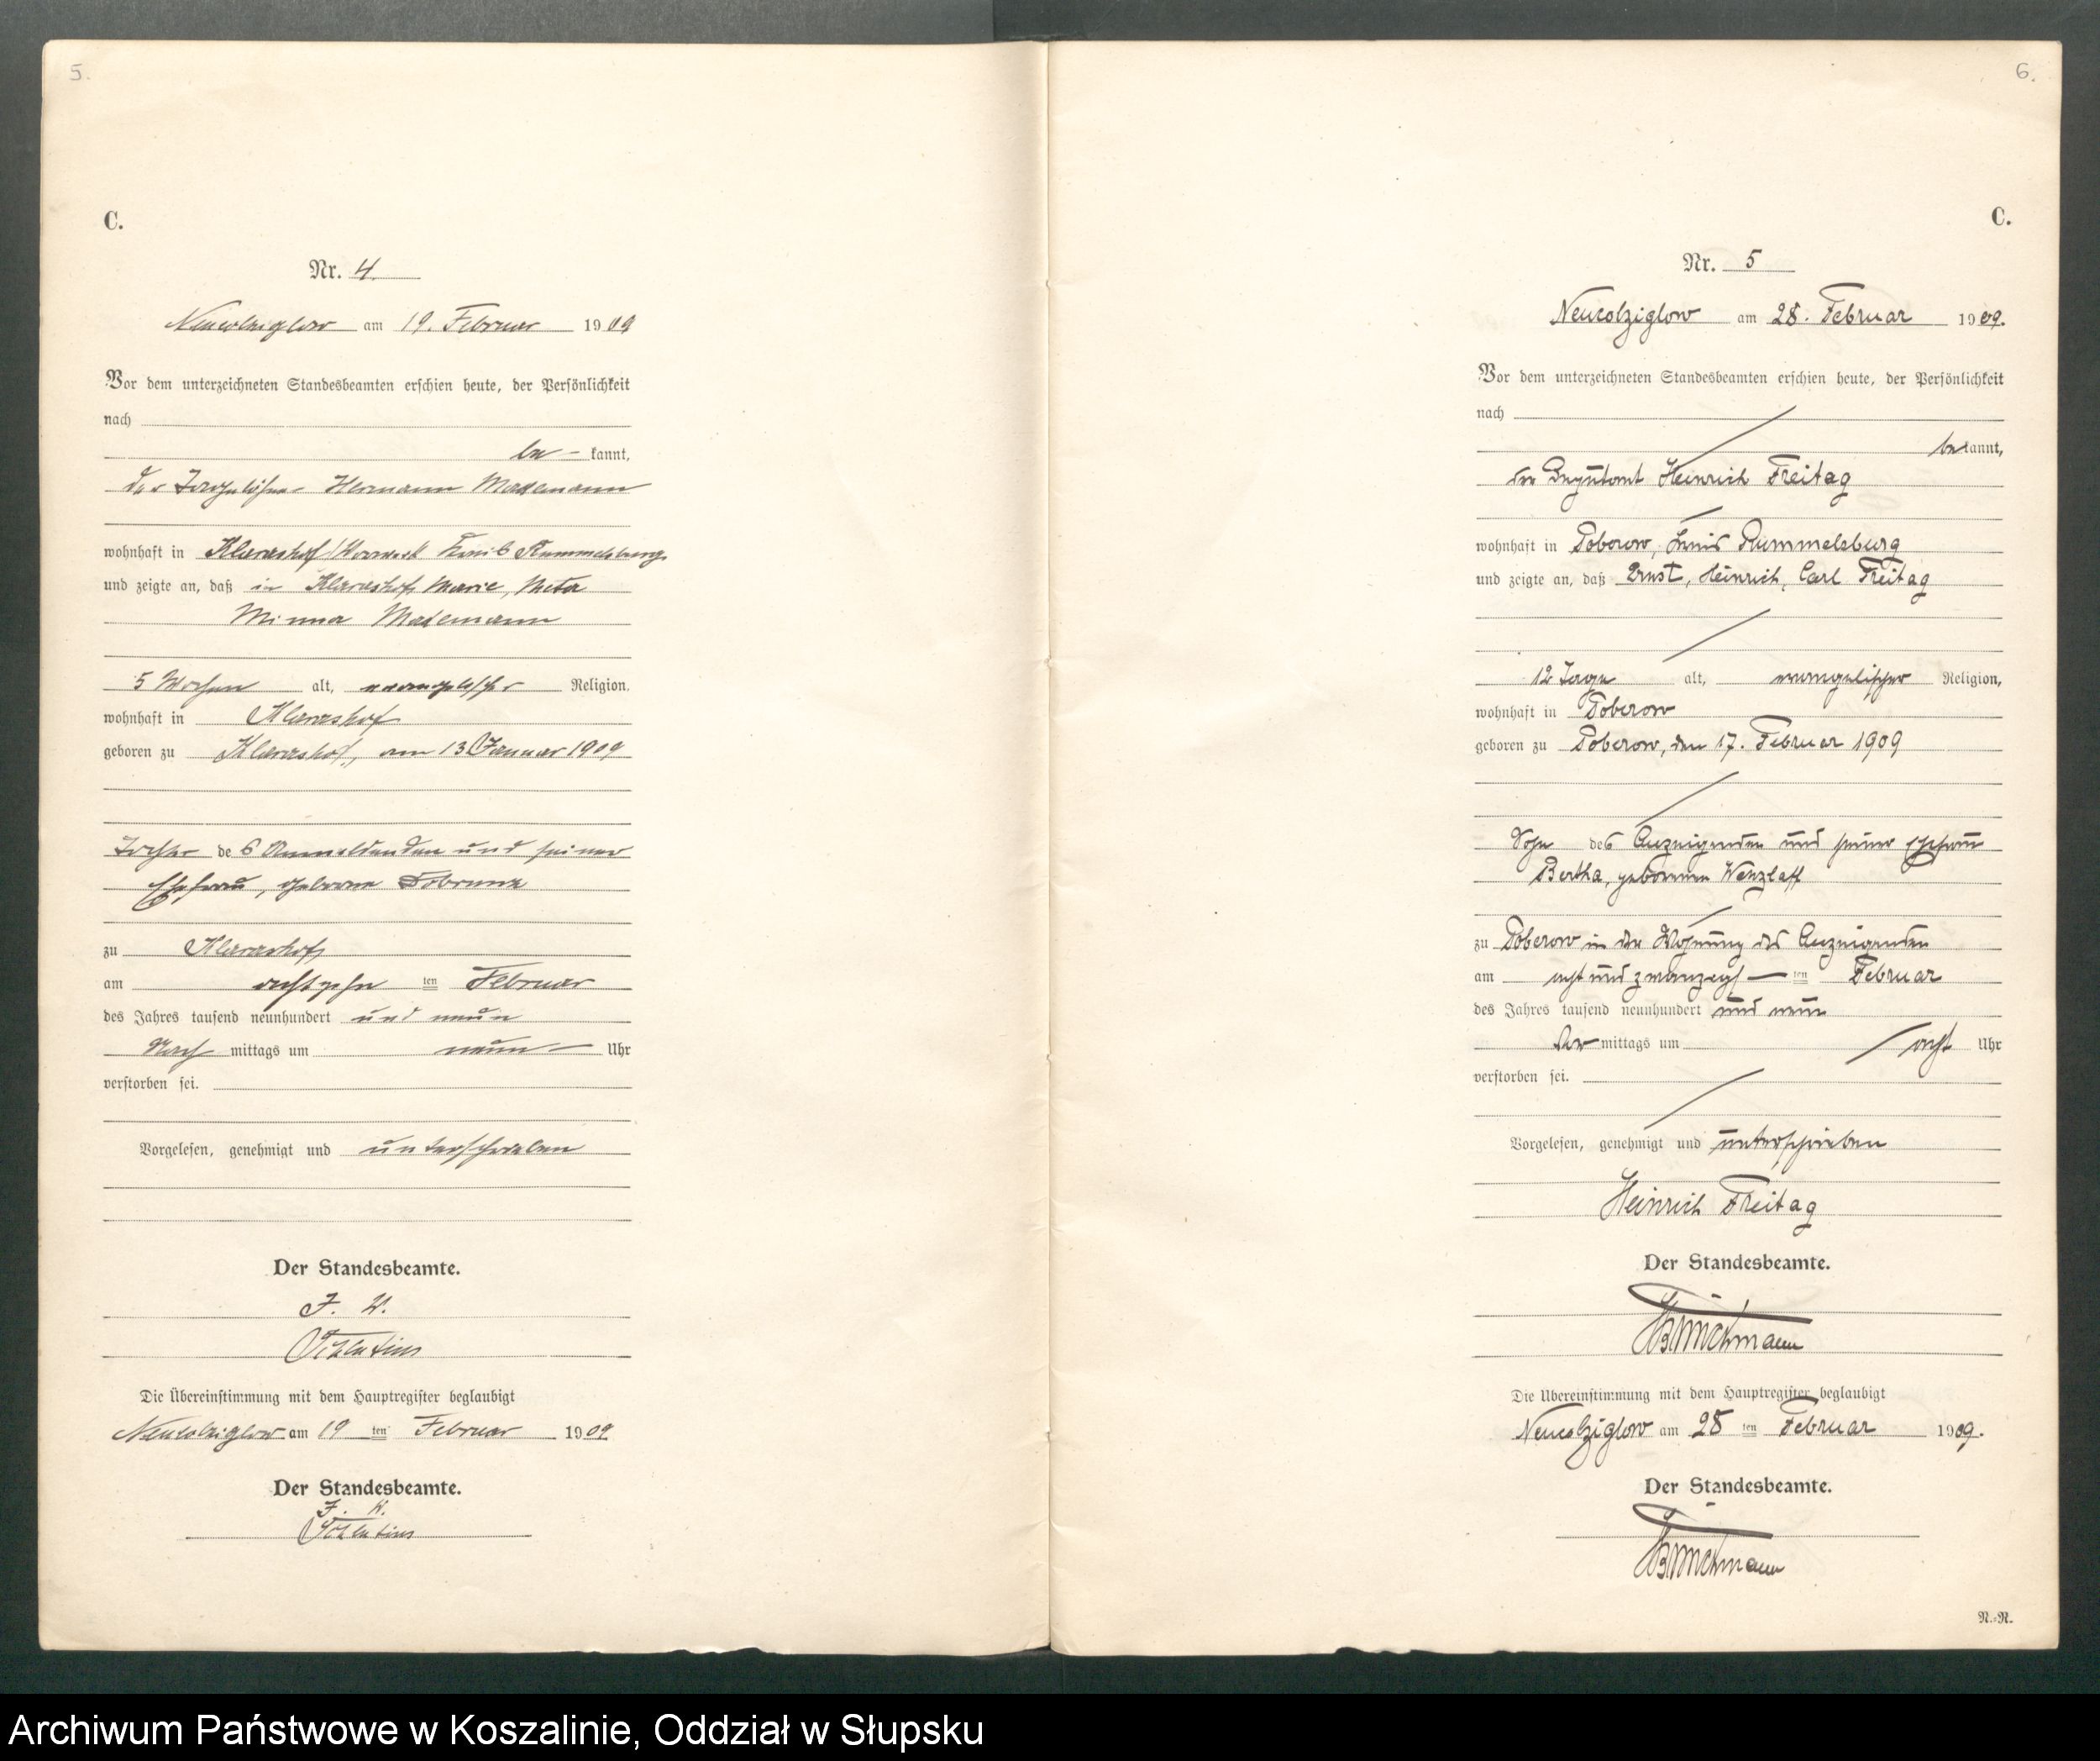 5.
C.
Nr. 4.
Neucolziglow am 19. Februar 1909
Vor dem unterzeichneten Standesbeamten erschien heute, der Persönlichkeit
nach
be- kannt,
der Tagelöhner Hermann
wohnhaft in Klarashof Vorwerk Kreis Rummelsburg
und zeigte an, daß in Klarashof, Marie, Meta
Minna
5 Wochen alt, evangelischer Religion.
wohnhaft in Klarashof
geboren zu Klarashof, am 13 Januar 1909
Tochter des Anmeldenden und seiner
Ehefrau, geborene
zu Klarashof
am achtzehn ten Februar
des Jahres tausend neunhundert und neun
Nach mittags um neun Uhr
verstorben sei.
Vorgelesen, genehmigt und unterschrieben
Der Standesbeamte.
Die Übereinstimmung mit dem Hauptregister beglaubigt
Neucolziglow am 19 ten Februar 1909
Der Standesbeamte.
6.
C.
Nr. 5
Neucolziglow am 28. Februar 1909.
Vor dem unterzeichneten Standesbeamten erschien heute, der Persönlichkeit
nach
bekannt,
der Heinrich Freitag
wohnhaft in Poberow, Kreis Rummelsburg
und zeigte an, daß Ernst, Heinrich, Carl Freitag
12 Tage alt, evangelischer Religion,
wohnhaft in Poberow
geboren zu Poberow, den 17. Februar 1909
Sohn des Anzeigenden und seiner Ehefrau
Bertha, geborenen Wenzlaff
zu Poberow in der Wohnung des Anzeigenden
am acht und zwanzigs ten Februar
des Jahres tausend neunhundert und neun
Vor mittags um acht Uhr
verstorben sei.
Vorgelesen, genehmigt und unterschrieben
Heinrich Freitag
Der Standesbeamte.
Die Übereinstimmung mit dem Hauptregister beglaubigt
Neucolziglow am 28 ten Februar 1909.
Der Standesbeamte.
N.-N.
Archiwum Państwowe w Koszalinie, Oddział w Słupsku